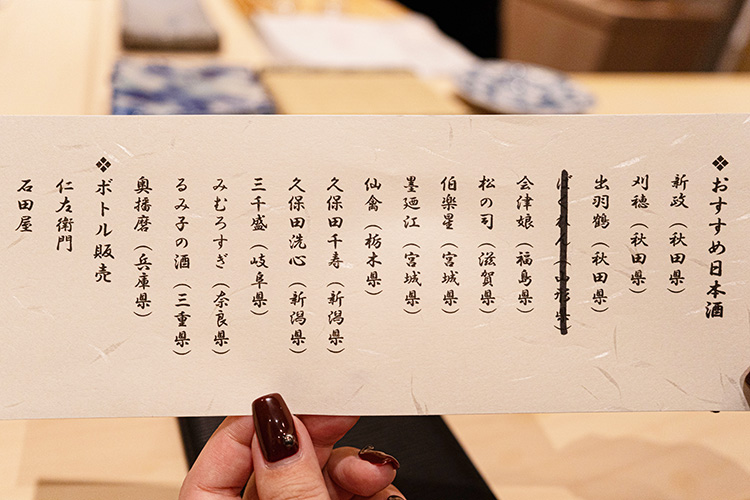 ❖おすすめ日本酒
新政（秋田県）
刈穂（秋田県）
出羽鶴（秋田県）
ばくれん（山形県）
会津娘（福島県）
松の司（滋賀県）
伯楽星（宮城県）
墨廼江（宮城県）
仙禽（栃木県）
久保田千寿（新潟県）
久保田洗心（新潟県）
三千盛（岐阜県）
みむろすぎ（奈良県）
るみ子の酒（三重県）
奥播磨（兵庫県）
❖ボトル販売
仁左衛門
石田屋